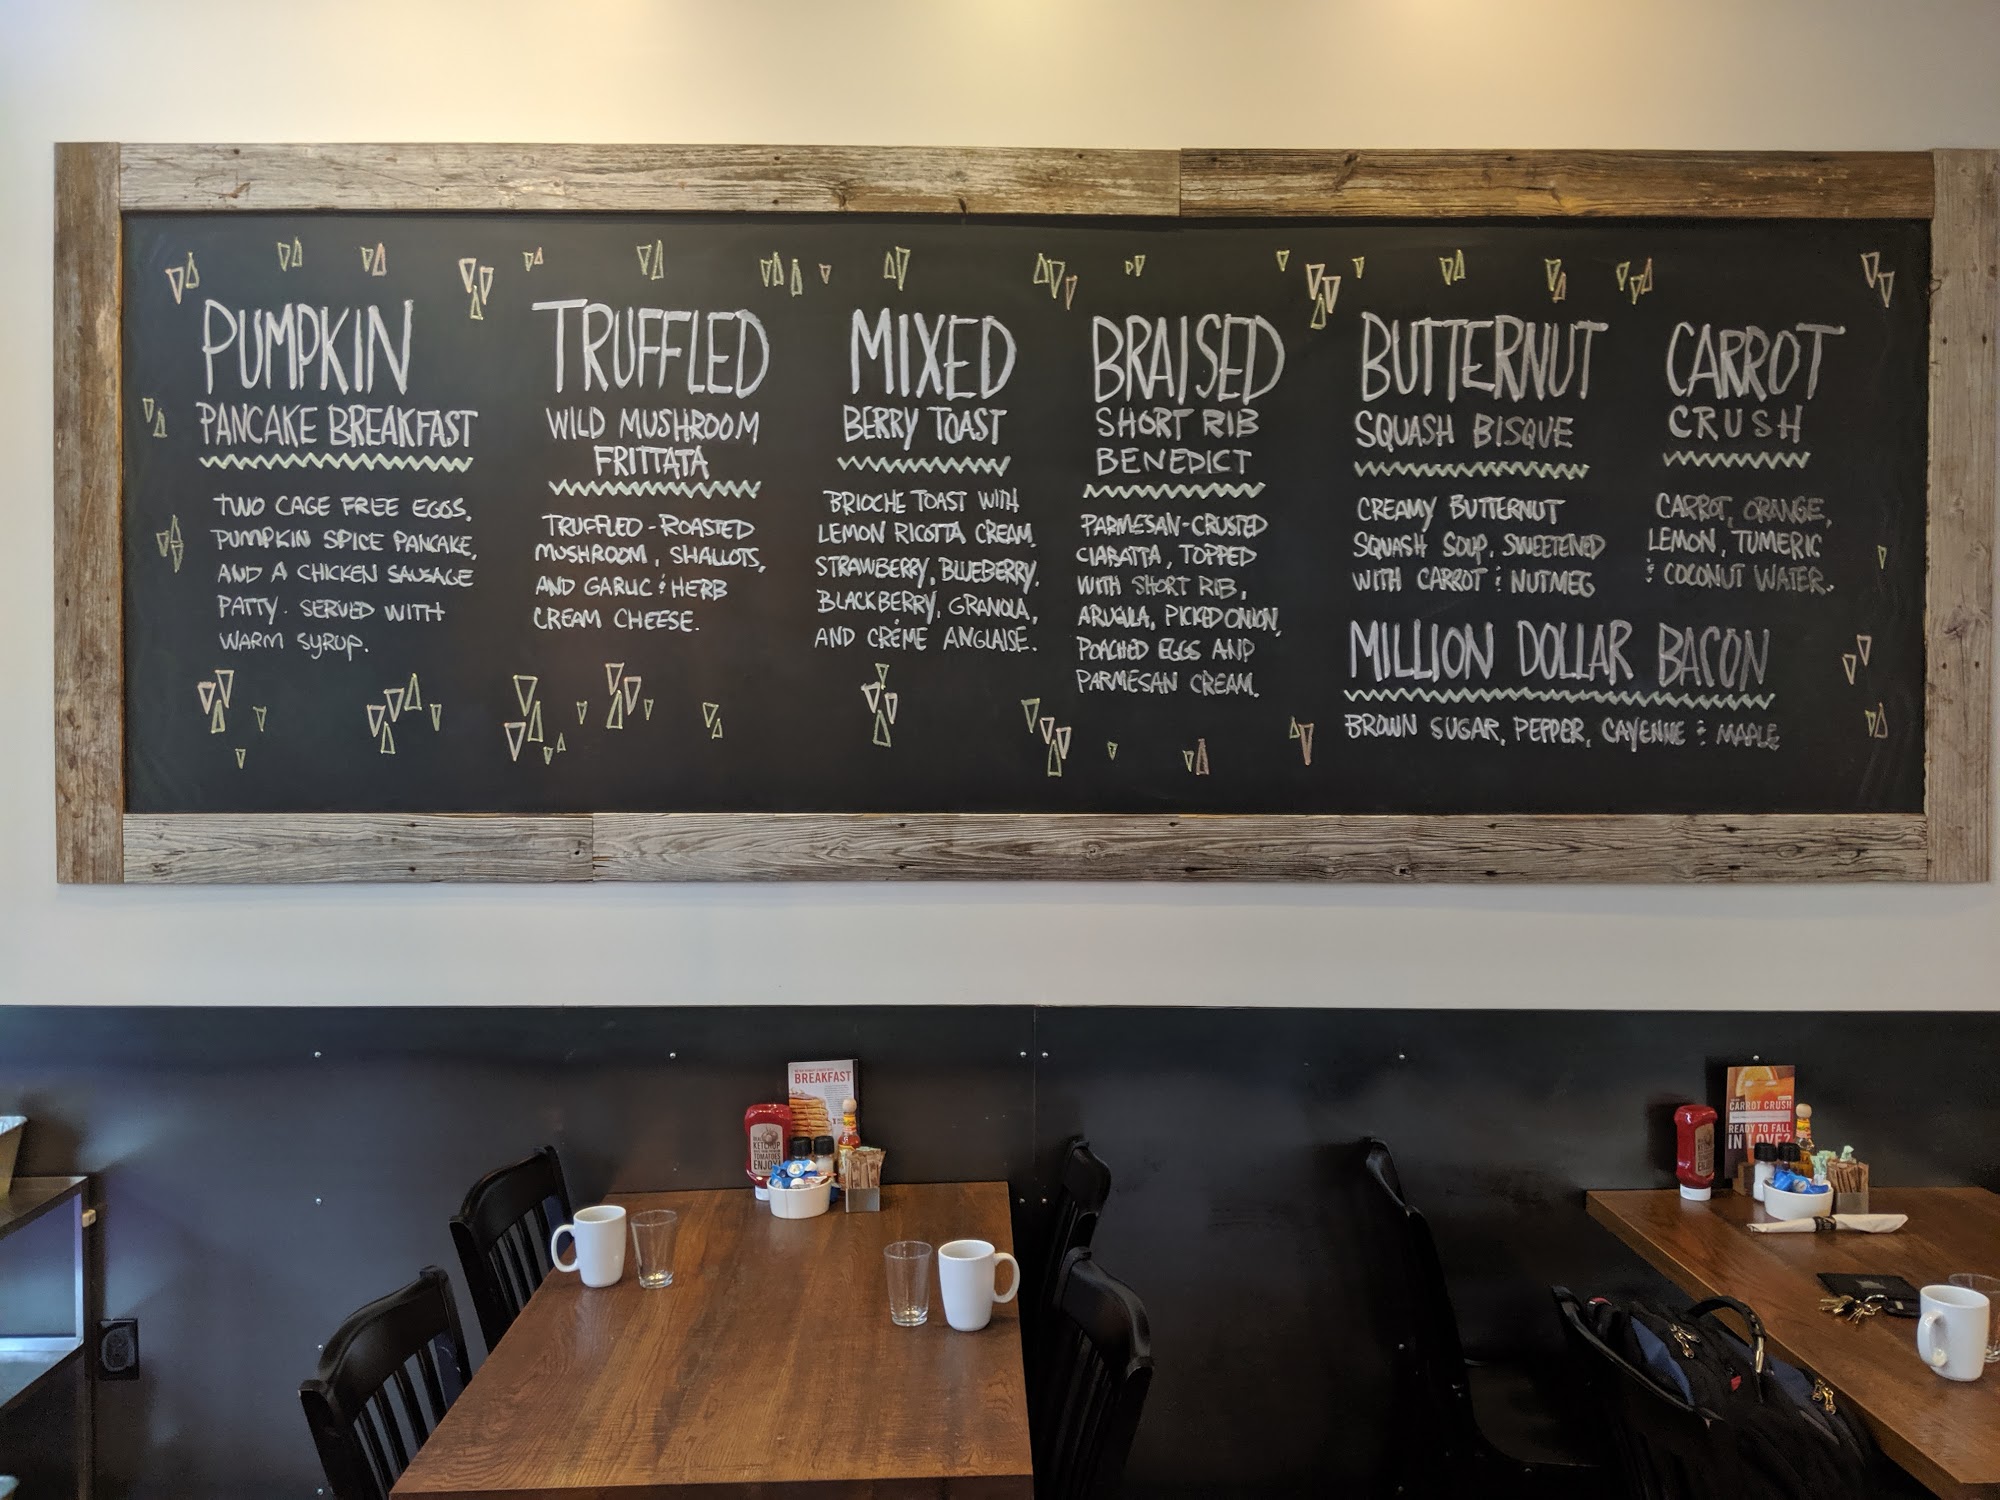 PUMPKIN
PANCAKE BREAKFAST
TWO CAGE FREE EGGS,
PUMPKIN SPICE PANCAKE,
AND A CHICKEN SAUSAGE
PATTY. SERVED WITH
WARM SYRUP.
TRUFFLED
WILD MUSHROOM
FRITTATA
TRUFFLED-ROASTED
MUSHROOM, SHALLOTS,
AND GARLIC & HERB
CREAM CHEESE.
MIXED
BERRY TOAST
BRIOCHE TOAST WITH
LEMON RICOTTA CREAM,
STRAWBERRY, BLUEBERRY,
BLACKBERRY, GRANOLA,
AND CRÈME ANGLAISE.
BRAISED
SHORT RIB
BENEDICT
PARMESAN-CRUSTED
CIABATTA, TOPPED
WITH SHORT RIB,
ARUGULA, PICKED ONION,
POACHED EGGS AND
PARMESAN CREAM.
BUTTERNUT
SQUASH BISQUE
CREAMY BUTTERNUT
SQUASH SOUP, SWEETENED
WITH CARROT & NUTMEG
CARROT
CRUSH
CARROT, ORANGE,
LEMON, TUMERIC
& COCONUT WATER.
MILLION DOLLAR BACON
BROWN SUGAR, PEPPER, CAYENNE & MAPLE
BREAKFAST
KETCHUP
TOMATOES
ENJOY!
CARROT CRUSH
READY TO FALL
IN LOVE?